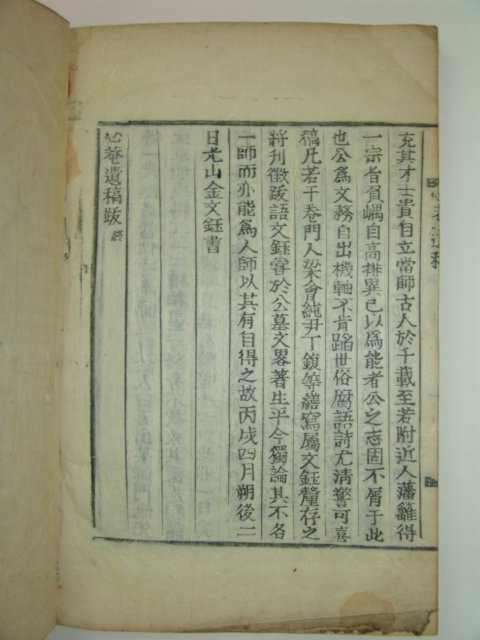 充其才士貴自立當師古人於千載至若附近人藩籬得
一宗旨負嵎自高排異己以爲能者公之志固不屑于此
也公爲文務自出機軸不肯蹈世俗腐語詩尤淸警可喜
稿凡若干卷門人梁會純尹丁鍑等繕寫屬文鈺釐存之
將刊徵跋語文鈺嘗於公墓文畧著生平今獨論其不名
一師而亦能爲人師以其有自得之故丙戌四月朔後二
日光山金文鈺書
心菴遺稿跋 終